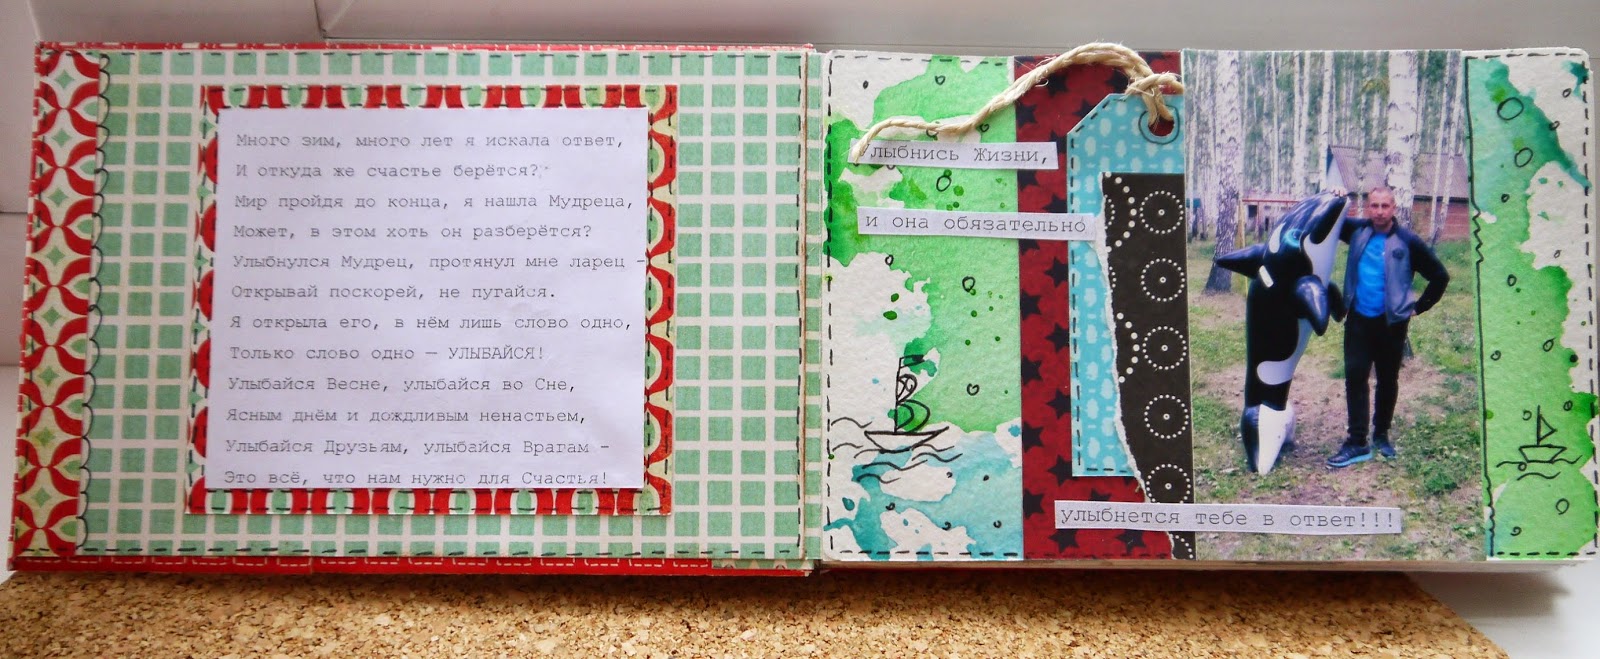 Много зим, много лет я искала ответ,
И откуда же счастье берётся?
Мир пройдя до конца, я нашла Мудреца,
Может, в этом хоть он разберётся?
Улыбнулся Мудрец, протянул мне ларец –
Открывай поскорей, не пугайся.
Я открыла его, в нём лишь слово одно,
Только слово одно – УЛЫБАЙСЯ!
Улыбайся Весне, улыбайся во Сне,
Ясным днём и дождливым ненастьем,
Улыбайся Друзьям, улыбайся Врагам –
Это всё, что нам нужно для Счастья!
Улыбнись Жизни,
и она обязательно
улыбнется тебе в ответ!!!